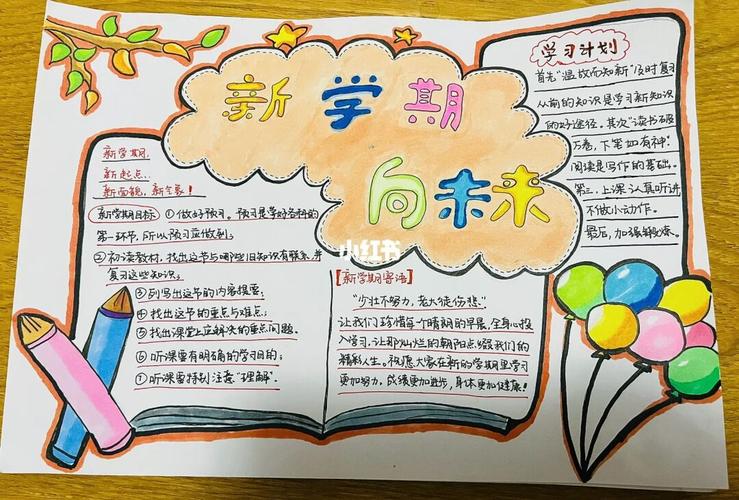 新学期
向未来
新学期,
新起点,
新面貌,新气象!
新学期目标 ①做好预习。预习是学好各科的
第一环节,所以预习应做到;
②初读教材,找出这节与哪些旧知识有联系,并
复习这些知识;
③列写出这节的内容提要;
④找出这节的重点与难点;
⑤找出课堂上应解决的重点问题。
⑥听课要有明确的学习目的;
⑦听课要特别注意"理解".
【新学期寄语】
"少壮不努力,老大徒伤悲."
让我们珍惜每个晴朗的早晨,全身心投
入学习,让那灿烂的朝阳点缀我们的
精彩人生。祝愿大家在新的学期里学习
更加努力,成绩更加进步,身体更加健康!
学习计划
首先"温故而知新"及时复习
从前的知识是学习新知识
的好途径。其次"读书破
万卷,下笔如有神"
阅读是写作的基础。
第三,上课认真听讲
不做小动作。
最后,加强锻炼。
小红书